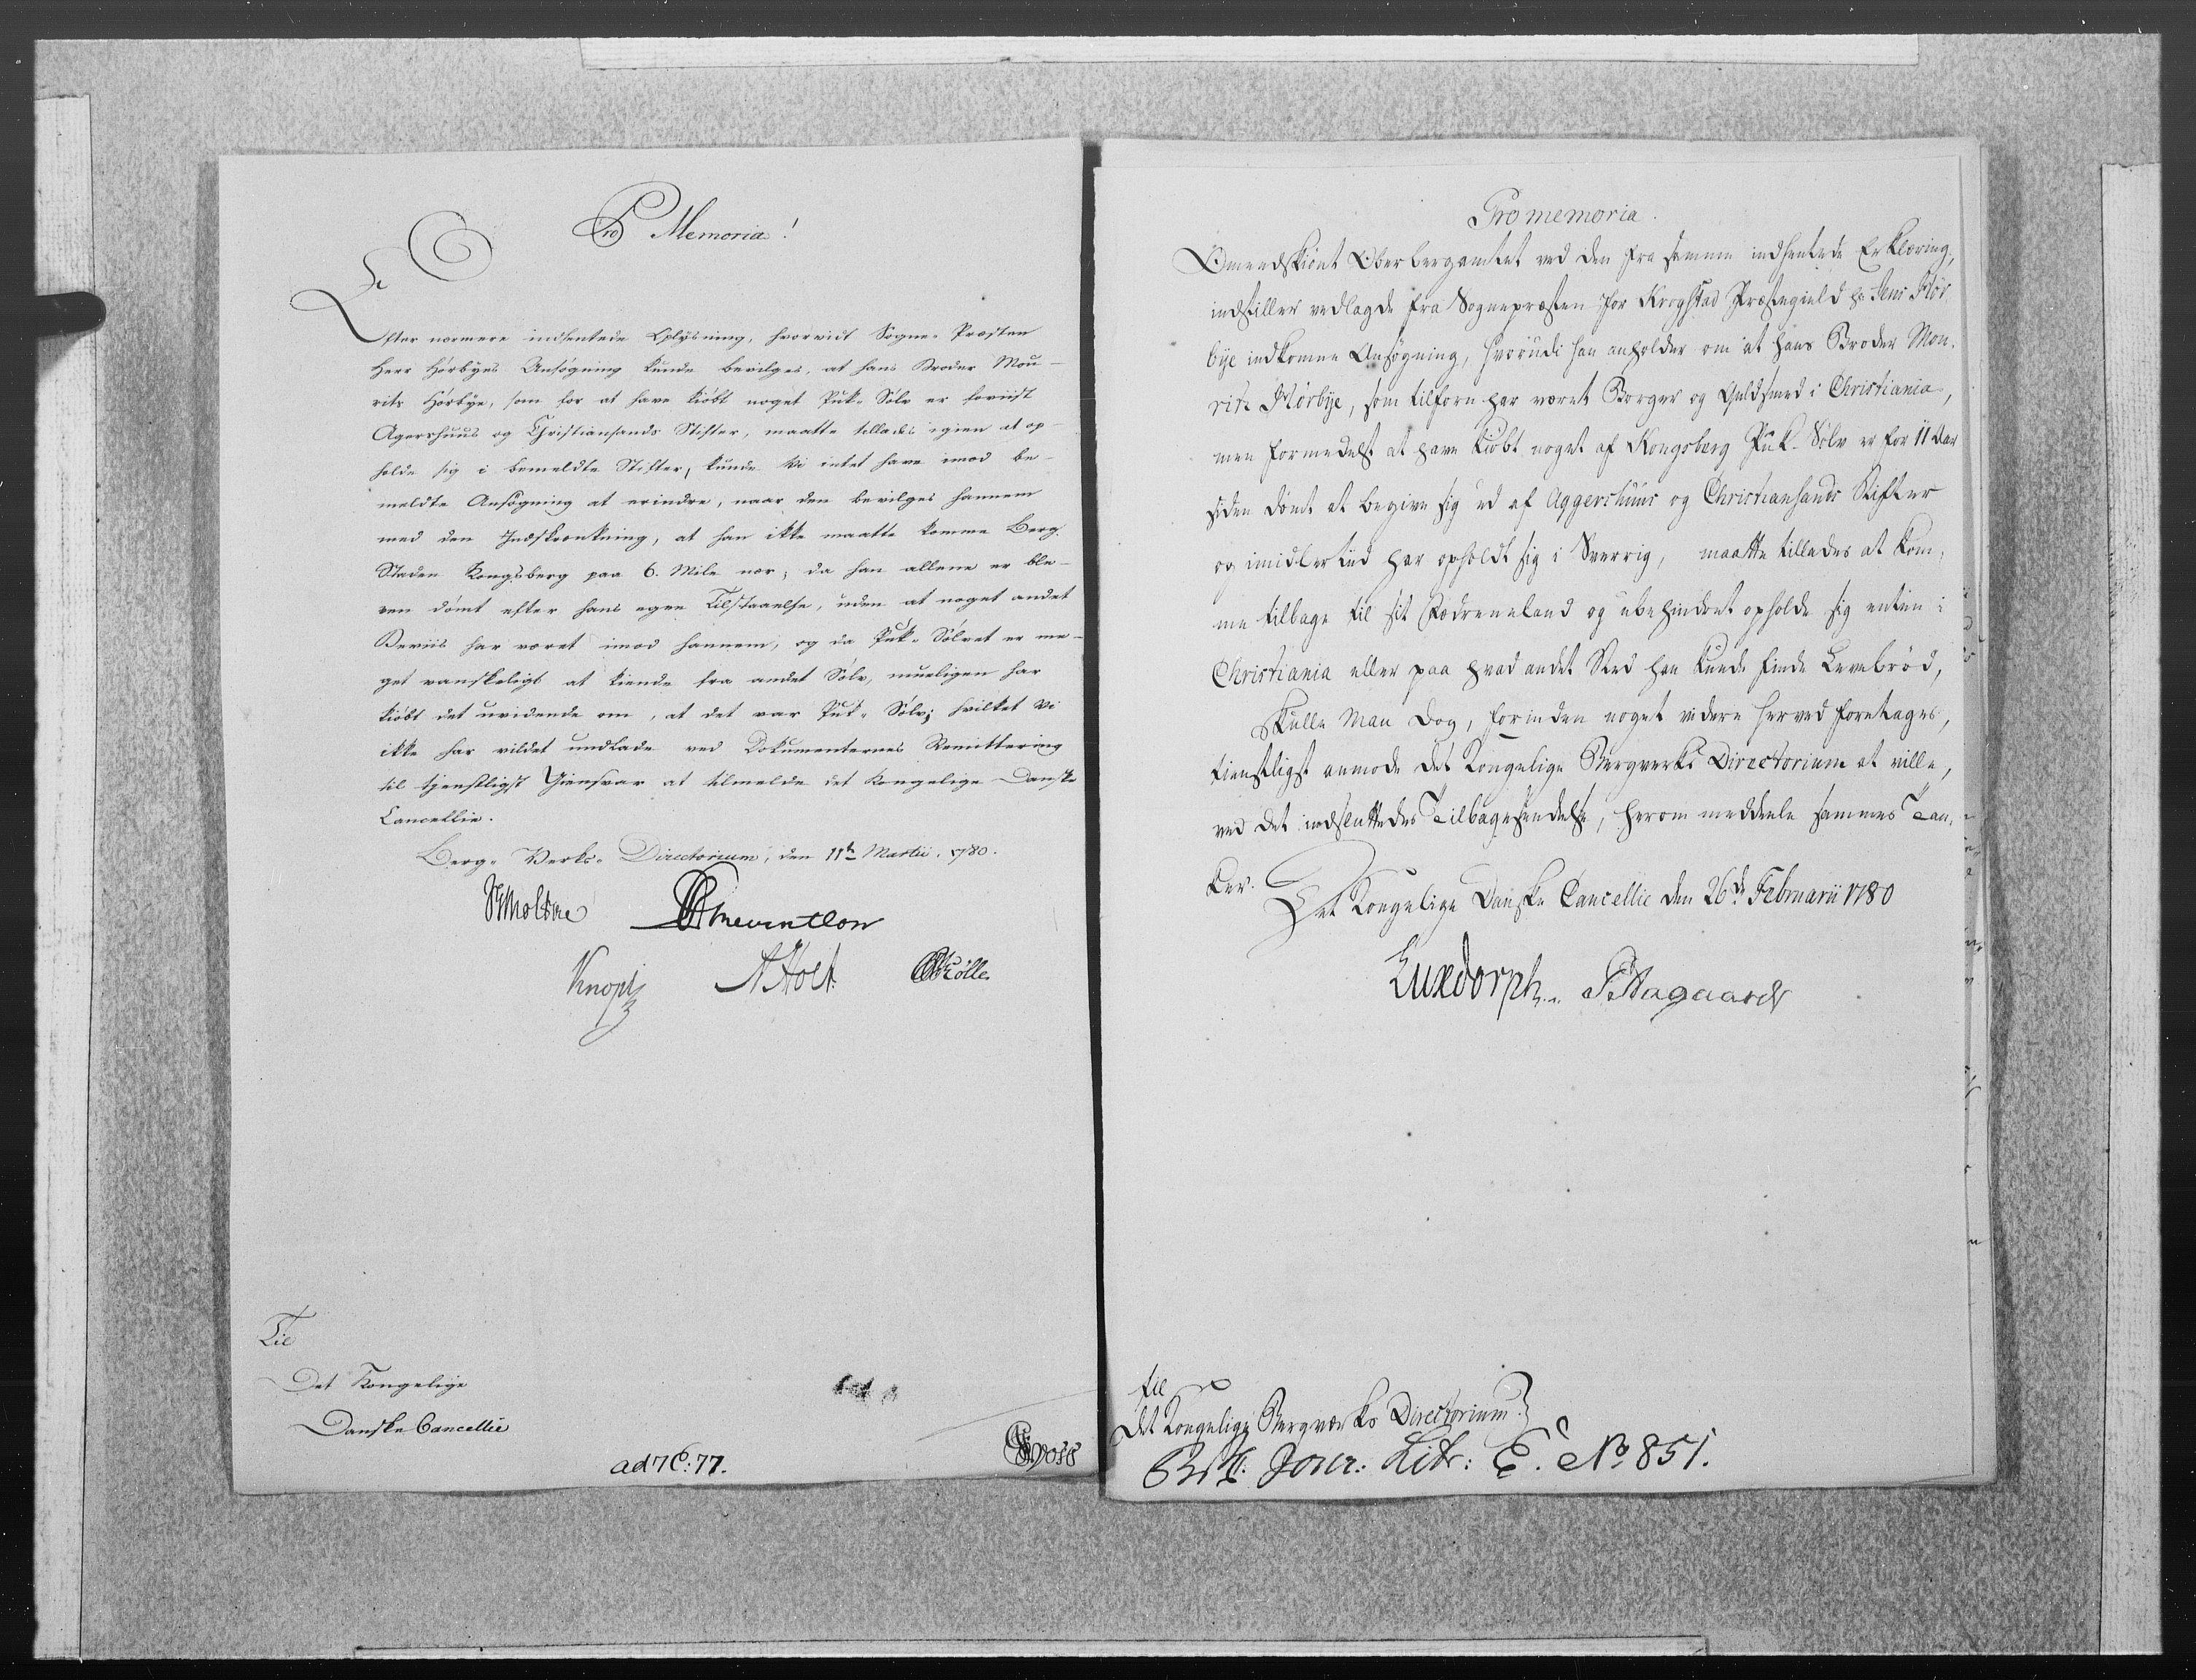 Pro Memoria!
Efter nærmere indhentede Oplysning, hvorvidt Sogne-Præsten
Herr Hørbyes Ansøgning kunde bevilges, at hans Broder Mou-
ritz Hørbye, som for at have kiøbt noget Puk-Sølv er forviist
Agershuus og Christiansands Stifter, maatte tillades igien at op-
holde sig i bemeldte Stifter, kunde Vi intet have imod be-
meldte Ansøgning at erindre, naar den bevilges hannem
med den Indskrænkning, at han ikke maatte komme Berg-
Staden Kongsberg paa 6. Mile nær; da han allene er ble-
ven dømt efter hans egen Tilstaaelse, uden at noget andet
Beviis har været imod hannem, og da Puk-Sølvet er me-
get vanskeligt at kiende fra andet Sølv, mueligen har
kiøbt det uvidende om, at det var Puk-Sølv; hvilket Vi
ikke har vildet undlade ved Dokumenternes Remittering
til tienstligst Giensvar at tilmelde det Kongelige Danske
Cancellie.
Berg-Verks-Directorium, den 11te Martii. 1780.
Moltke Reventlow
Knoph A Holt Cølle
Til
Det Kongelige
Danske Cancellie
ad 7 C: 77.
Promemoria.
Omendskiønt Oberbergamtet ved den fra samme indhentede Erklæring,
indstiller vedlagde fra Sognepræsten for Krogstad Præstegield Hr. Jens Hør-
bye indkomne Ansøgning, hvorudi han anholder om at hans Broder Mou-
ritz Hørbye, som tilforn har været Borger og Guldsmed i Christiania,
men formedelst at have kiøbt noget af Kongsberg Puk-Sølv er for 11 Aar
siden dømt at begive sig ud af Aggershuus og Christiansands Stifter
og imidlertiid har opholdt sig i Sverrig, maatte tillades at kom-
me tilbage til sit Fædreneland og ubehindret opholde sig enten i
Christiania eller paa hvad andet Sted han kunde finde Levebrød,
skulle Man dog, forinden noget videre herved foretages,
tienstligst anmode det Kongelige Bergverks Directorium at ville,
ved det indsluttedes Tilbagesendelse, herom meddeele sammes Tan-
ker.
Det Kongelige Danske Cancellie den 26de Februarii 1780
Luxdorph. P. Aagaard
til
Det Kongelige Bergværks Directorium.
Jour: Litr: E. No 851.